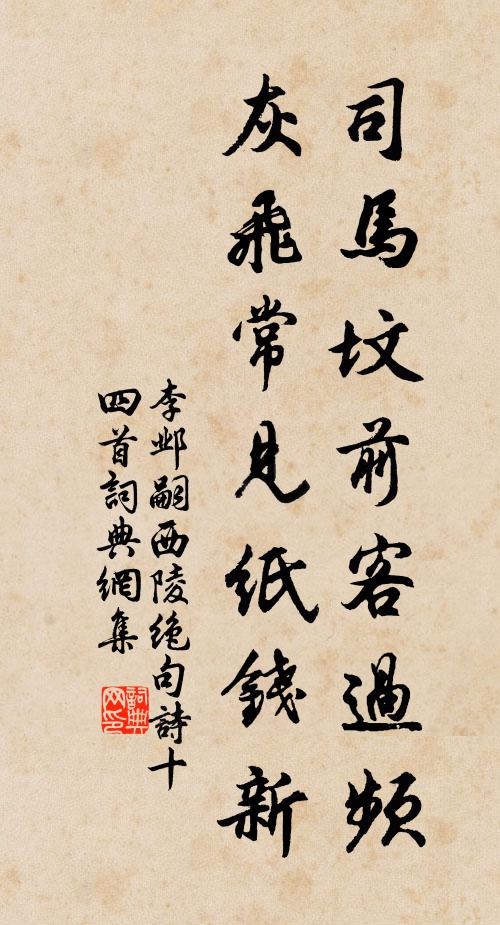 司馬墳前客過頻
灰飛常見紙錢新
李邺嗣西陵绝句詩十
四首詞典網集
詞典
网印